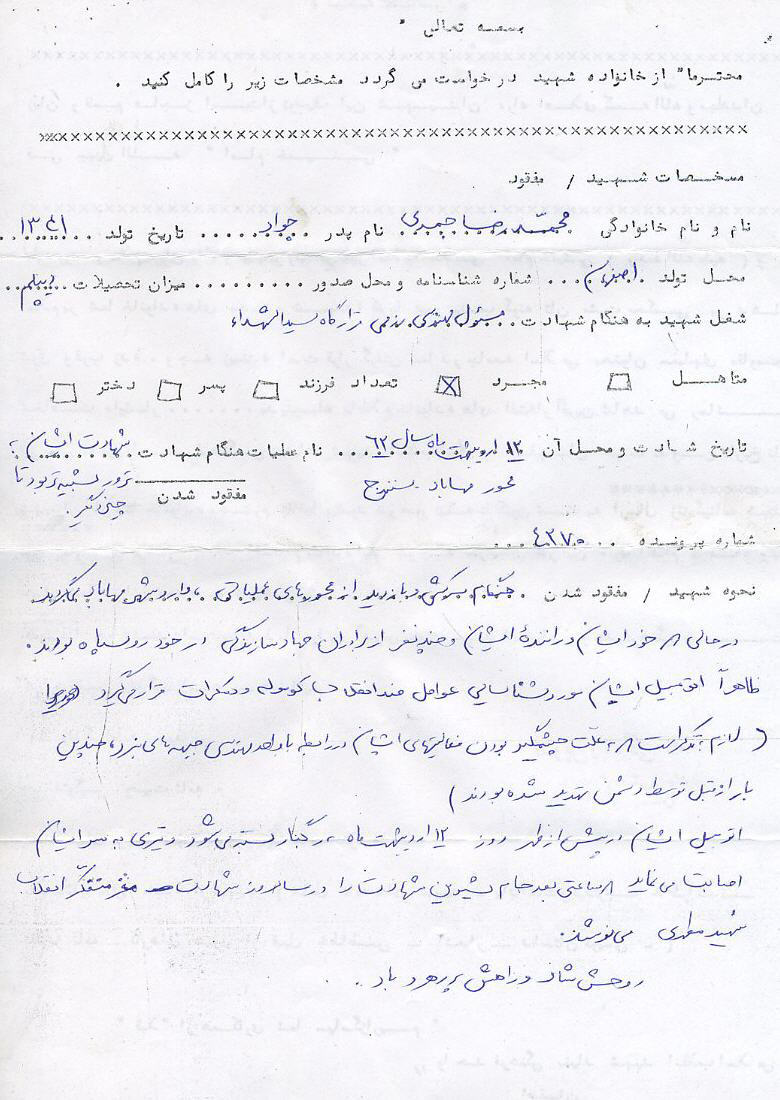 بسمه تعالی
محترما" از خانواده شهید درخواست می گردد مشخصات زیر را کامل کنید .
مشخصات شهید / مفقود
نام و نام خانوادگی محمدرضا حمیدی نام پدر جواد تاریخ تولد ۱۳۴۱
محل تولد اصفهان شماره شناسنامه و محل صدور میزان تحصیلات دیپلم
شغل شهید به هنگام شهادت مسئول مهندسی رزمی قرارگاه سیدالشهداء
متاهل مجرد تعداد فرزند پسر دختر
تاریخ شهادت و محل آن ۱۲ اردیبهشت ماه سال ۶۲ نام عملیات هنگام شهادت شهادت ایشان به
محور مهاباد - سنندج مفقود شدن ترور شبیه تر بود تا
چیز دیگر .
شماره پرونده ۴۲۷۰
نحوه شهید / مفقود شدن هنگام سرکشی و بازدید از محورهای عملیاتی
در حالی که خود ایشان و راننده ایشان و چند نفر از برادران جهاد سازندگی در خودرو سپاه بودند .
ظاهراً اتومبیل ایشان مورد شناسایی عوامل ضد انقلاب کومله و دمکرات قرار می‌گیرد
( لازم به تذکر است که به علت چشمگیر بودن فعالیتهای ایشان در رابطه با واحد مهندسی جبهه های نبرد ، چندین
بار از قبل توسط دشمن تهدید شده بودند )
اتومبیل ایشان در پیش از ظهر روز ۱۲ اردیبهشت ماه به رگبار بسته می شود و تیری به سر ایشان
اصابت می نماید که ساعتی بعد جام شیرین شهادت را در سالروز شهادت مغز متفکر انقلاب
شهید مطهری می نوشند .
روحش شاد و راهش پر رهرو باد .